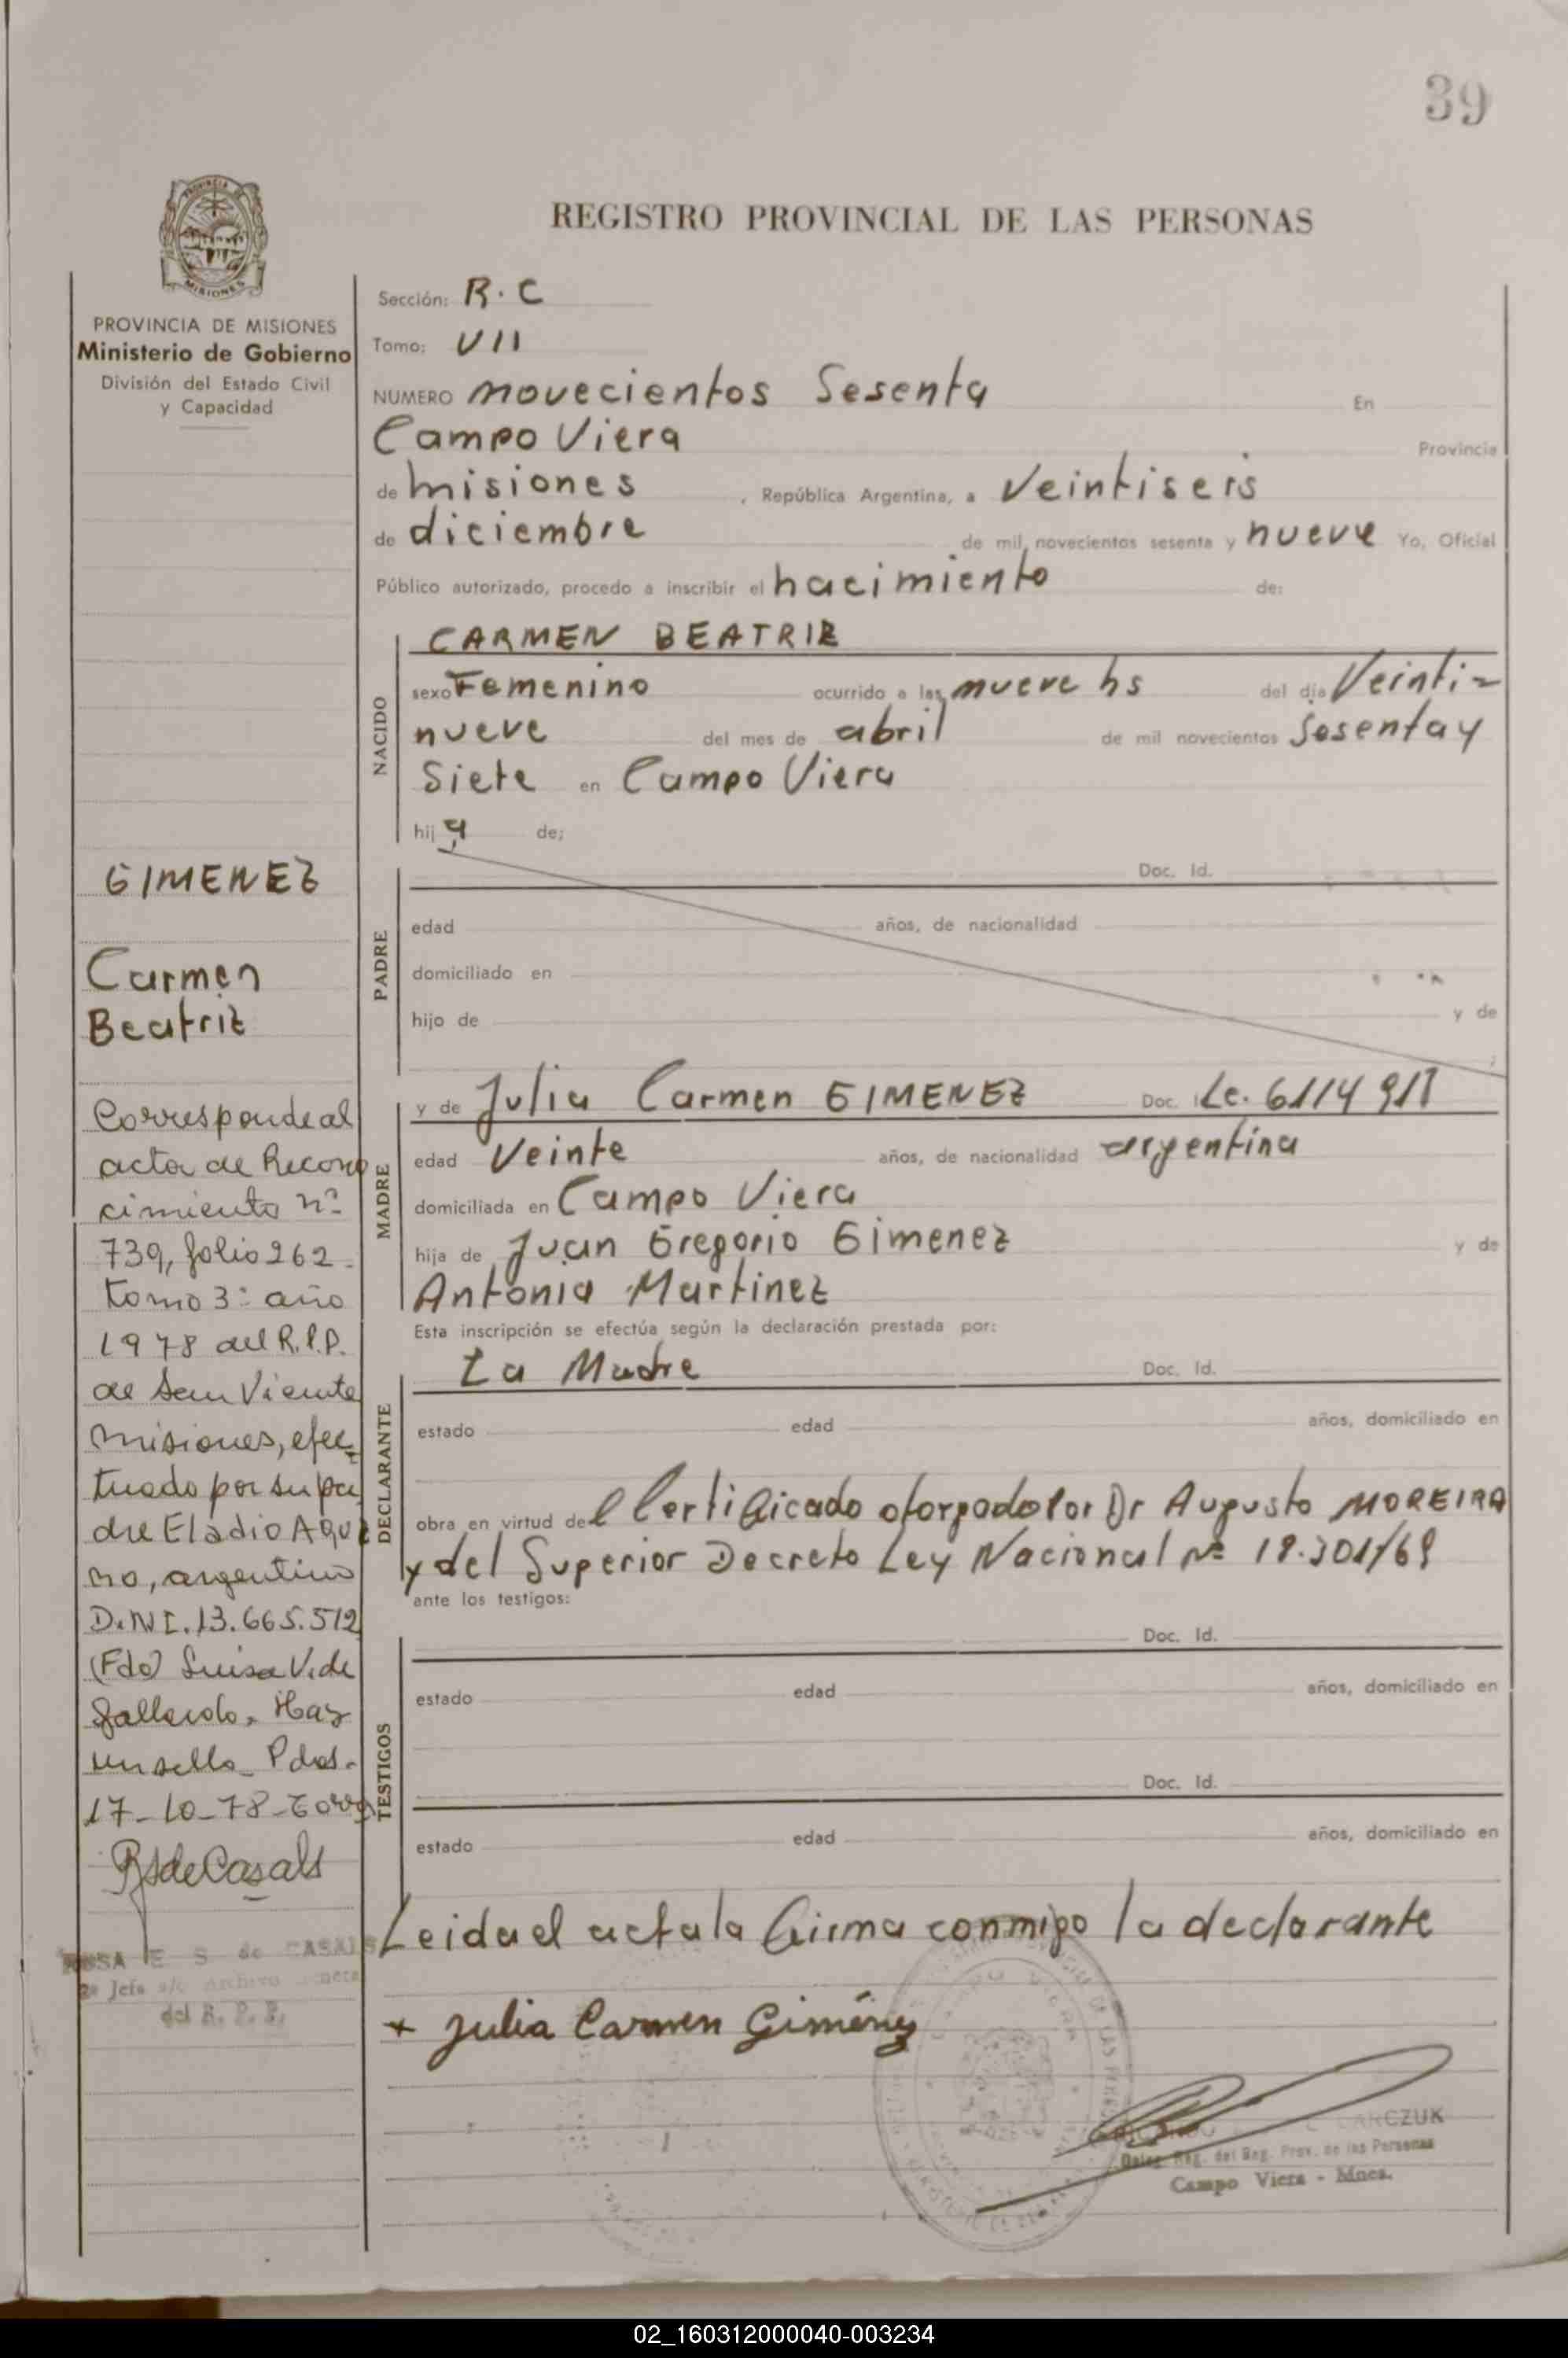 39
REGISTRO PROVINCIAL DE LAS PERSONAS
PROVINCIA DE
MISIONES
PROVINCIA DE MISIONES
Ministerio de Gobierno
División del Estado Civil
y Capacidad
Sección: R.C
Tomo: VII
NUMERO novecientos Sesenta En
Campo Viera Provincia
de misiones , República Argentina, a Veintiseis
de diciembre de mil novecientos sesenta y nueve Yo, Oficial
Público autorizado, procedo a inscribir el nacimiento de:
NACIDO
CARMEN BEATRIZ
sexo Femenino ocurrido a las nueve hs del día Veinti=
nueve del mes de abril de mil novecientos Sesenta y
Siete en Campo Viera
hij a de;
PADRE
Doc. Id.
edad años, de nacionalidad
domiciliado en
hijo de y de
;
MADRE
y de Julia Carmen GIMENEZ Doc. Lc. 6114911
edad Veinte años, de nacionalidad argentina
domiciliada en Campo Viera
hija de Juan Gregorio Gimenez y de
Antonia Martinez
Esta inscripción se efectúa según la declaración prestada por:
DECLARANTE
La Madre Doc. Id.
estado edad años, domiciliado en
obra en virtud del Certificado otorgado Por Dr Augusto MOREIRA
y del Superior Decreto Ley Nacional Nº 18.301/69
ante los testigos:
TESTIGOS
Doc. Id.
estado edad años, domiciliado en
Doc. Id.
estado edad años, domiciliado en
Leida el acta la firma conmigo la declarante
+ Julia Carmen Giménez
CZUK
Deleg. Reg. del Reg. Prov. de las Personas
Campo Viera - Mnes.
GIMENEZ
Carmen
Beatriz
Corresponde al
acta de Recono
cimiento nº
739, folio 262.
tomo 3º año
1978 del R.P.P.
de San Vicente
Misiones, efec
tuado por su pa
dre Eladio Aqui
no, argentino
D.N.I. 13.665.512
(Fdo) Luisa V. de
Gallardo. Hay
un sello Pdas.
17-10-78-
RSdeCasals
ROSA E S de CASALS
2º Jefe a/c Archivo General
del R. P. P.
02_160312000040-003234